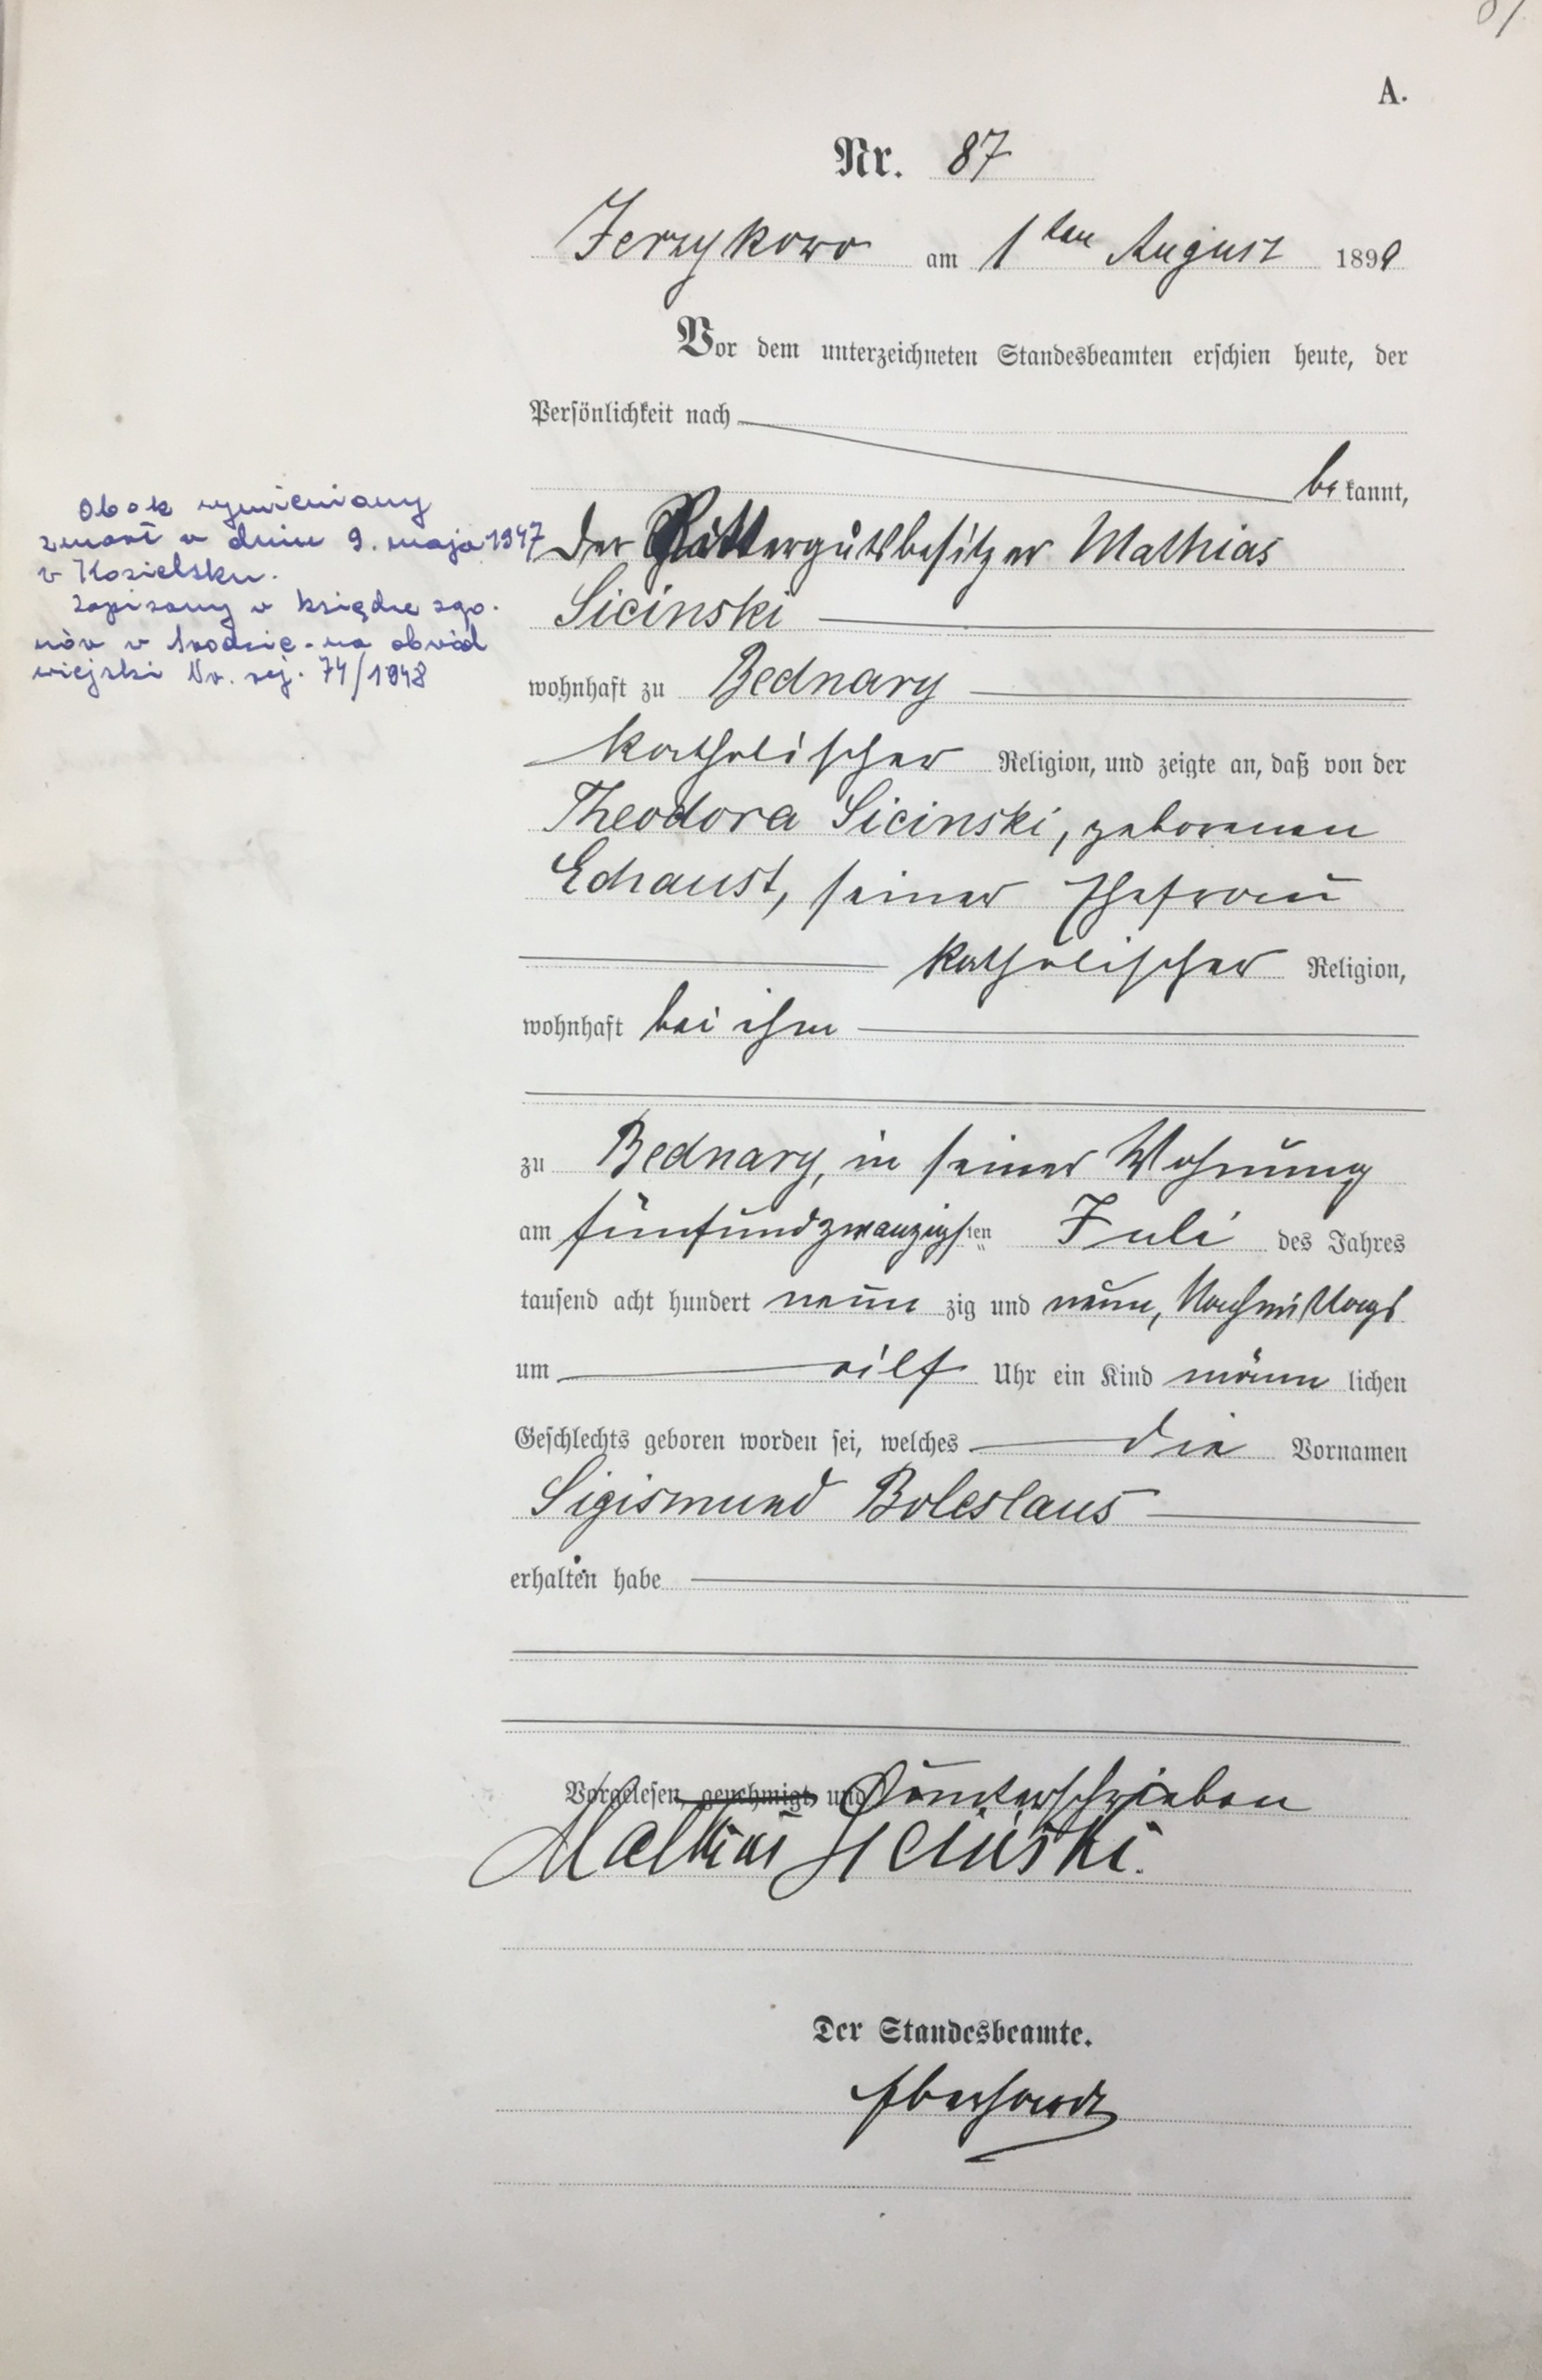 A.
Nr. 87
Jerzykowo am 1ten August 1899
Vor dem unterzeichneten Standesbeamten erschien heute, der
Persönlichkeit nach
be kannt,
der Rittergutsbesitzer Mathias
Sicinski
wohnhaft zu Bednary
katholischer Religion, und zeigte an, daß von der
Theodora Sicinski, geborenen
Echaust, seiner Ehefrau
katholischer Religion,
wohnhaft bei ihm
zu Bednary, in seiner Wohnung
am fünfundzwanzigsten Juli des Jahres
tausend acht hundert neun zig und neun, Nachmittags
um eilf Uhr ein Kind männ lichen
Geschlechts geboren worden sei, welches die Vornamen
Sigismund Boleslaus
erhalten habe
Vorgelesen, genehmigt, und unterschrieben
Mathias Sicinski.
Der Standesbeamte.
Eberhardt
Obok wymieniony
zmarł w dniu 9. maja 1947
w Kozielsku.
Zapisany w księdze zgo-
nów w Środzie - na obwód
wiejski Nr. rej. 74/1948